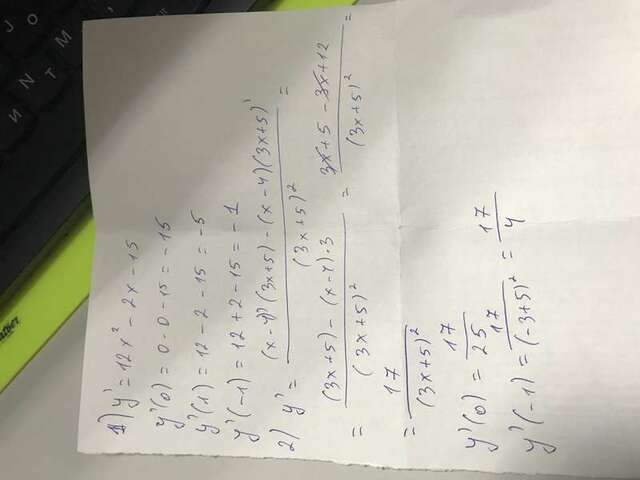 1) y' = 12x² - 2x - 15
y'(0) = 0 - 0 - 15 = -15
y'(1) = 12 - 2 - 15 = -5
y'(-1) = 12 + 2 - 15 = -1
2) y' = ((x-4)'(3x+5) - (x-4)(3x+5)')/(3x+5)² =
= ((3x+5) - (x-4)·3)/(3x+5)² = (3x+5 - 3x+12)/(3x+5)² =
= 17/(3x+5)²
y'(0) = 17/25
y'(-1) = 17/(-3+5)² = 17/4